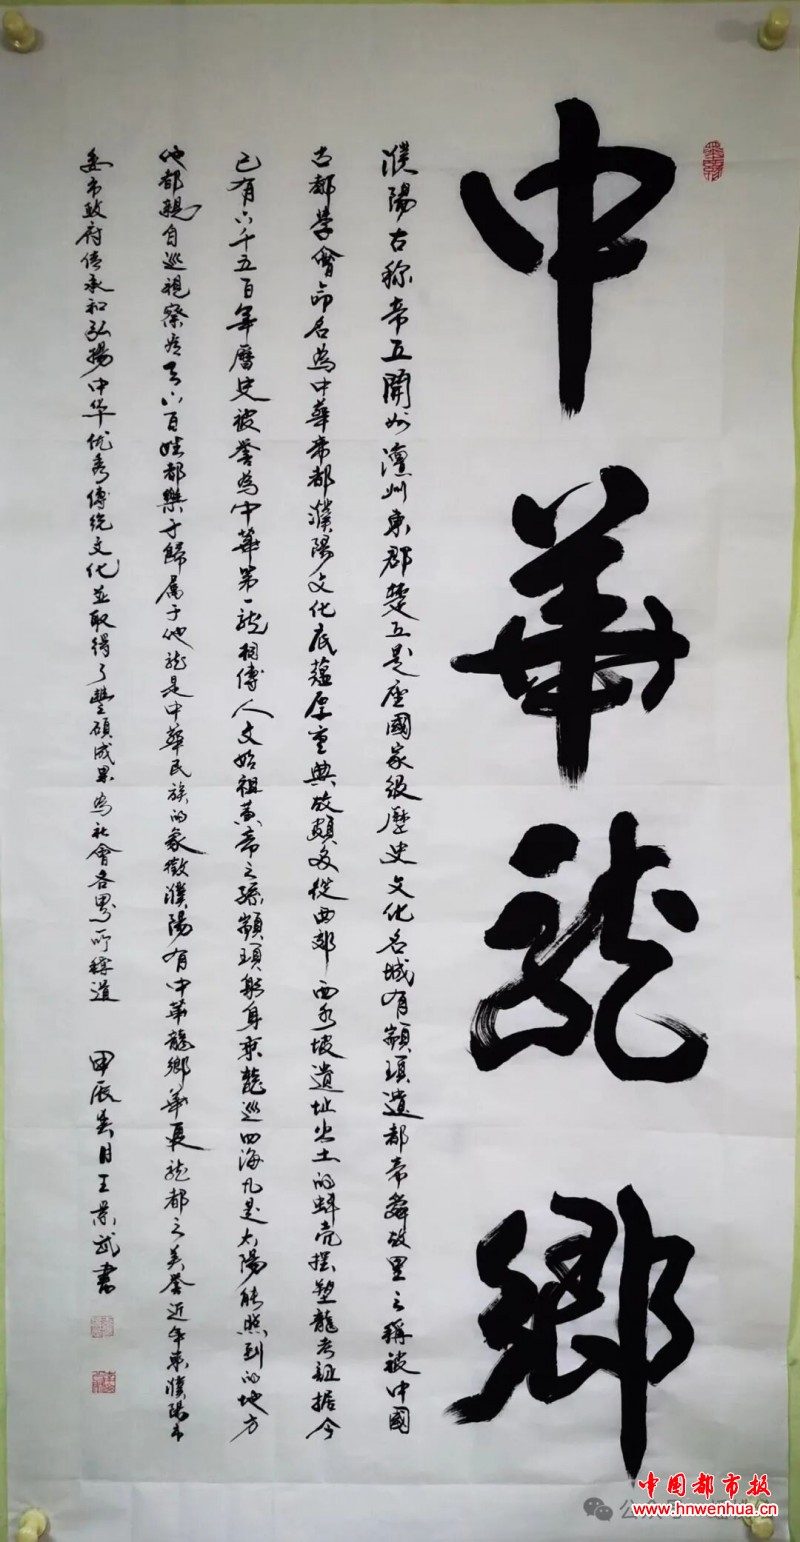 中華龍鄉
濮陽古称帝丘開州澶州東郡楚丘是座國家級歷史文化名城有顓頊遺都帝舜故里之稱被中國
古都學會命名為中華帝都濮陽文化底蘊厚重典故頗多從西郊西水坡遺址出土的蚌壳摆塑龍考証据今
已有六千五百年曆史被誉為中華第一龍相傳人文始祖黃帝之孫顓頊躬身乘龍巡四海凡是太陽能照到的地方
他都親自巡視察看天下百姓都樂于歸属于他龍是中華民族的象徵濮陽有中華龍鄉華夏龍都之美誉近年來濮陽市
委市政府传承和弘揚中华优秀傳统文化並取得了豐碩成果為社會各界所稱道 甲辰 月王景武書
中国都市报
www.hnwenhua.cn
公众号